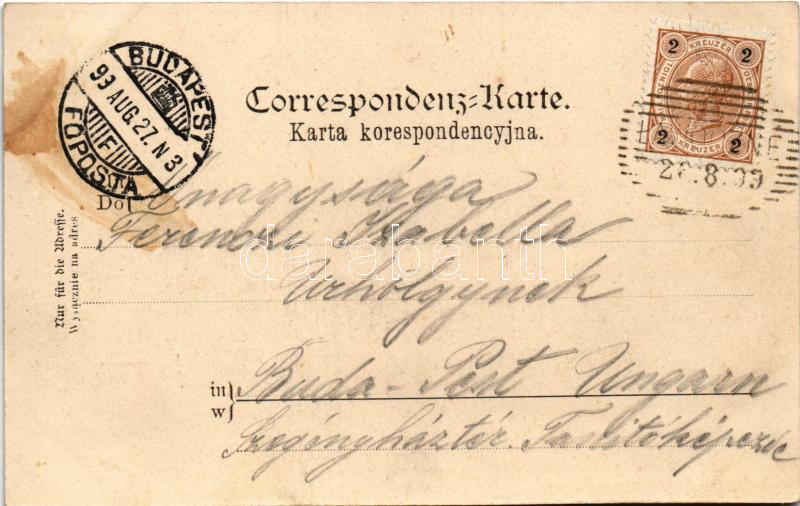 BUDAPEST
93 AUG. 27. N 3
F
FŐPOSTA
2 KREUZER 2
2 KREUZER 2
8 99
Correspondenz-Karte.
Karta korespondencyjna.
Nur für die Adresse.
Wyłącznie na adres
Do
Őnagysága
Ferenczi Izabella
Urhölgynek
in
w
Buda-Pest Ungarn
Szegényháztér. Tanitóképezde
darabanth